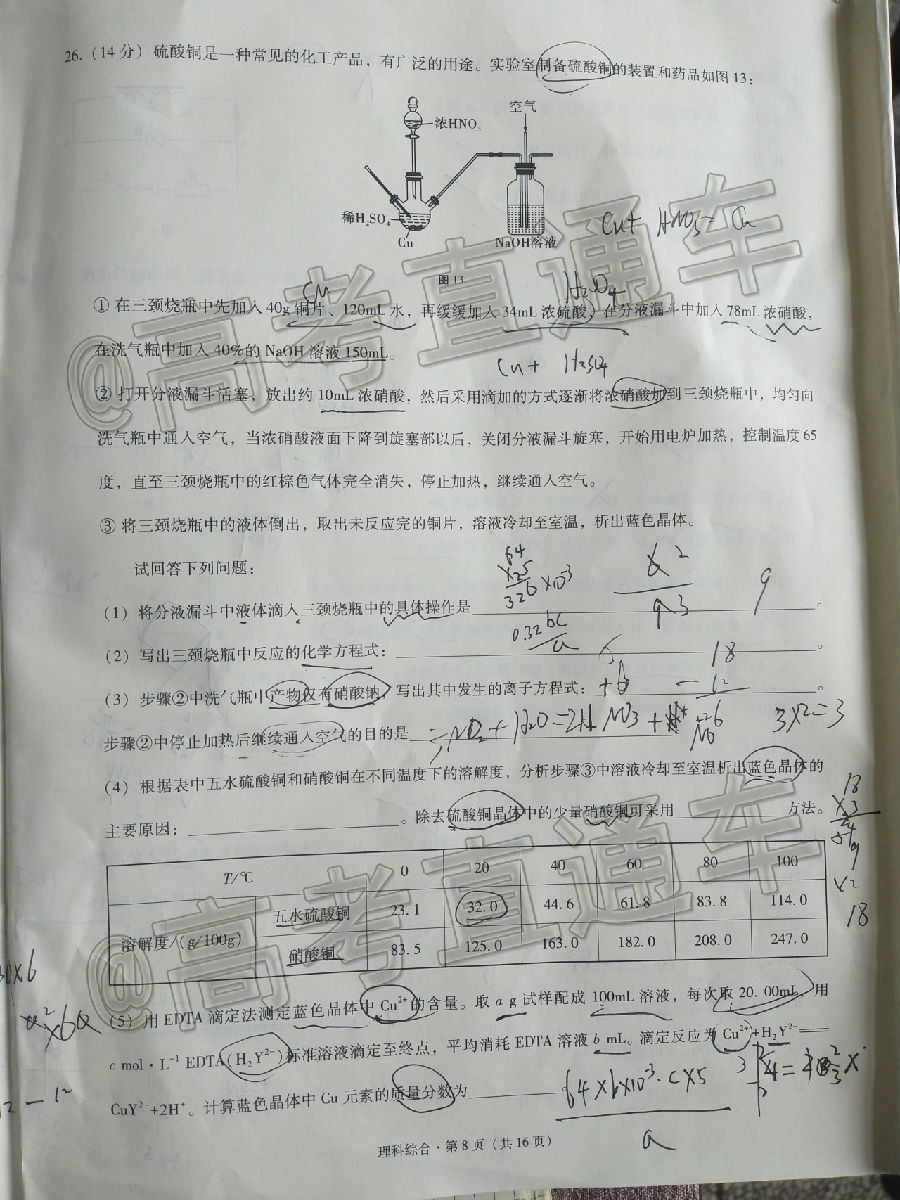 26.（14分）硫酸铜是一种常见的化工产品，有广泛的用途。实验室制备硫酸铜的装置和药品如图13：
空气
浓HNO₃
稀H₂SO₄
Cu
NaOH溶液
Cu+ HNO3= Cu
图13
Cu
H2SO4
①在三颈烧瓶中先加入40g铜片、120mL水，再缓缓加入34mL浓硫酸，在分液漏斗中加入78mL浓硝酸，
在洗气瓶中加入40%的NaOH溶液150mL。
Cu+ H2SO4
②打开分液漏斗活塞，放出约10mL浓硝酸，然后采用滴加的方式逐渐将浓硝酸加到三颈烧瓶中，均匀向
洗气瓶中通入空气，当浓硝酸液面下降到旋塞部以后，关闭分液漏斗旋塞，开始用电炉加热，控制温度65
度，直至三颈烧瓶中的红棕色气体完全消失，停止加热，继续通入空气。
③将三颈烧瓶中的液体倒出，取出未反应完的铜片，溶液冷却至室温，析出蓝色晶体。
试回答下列问题：
64
×25
326×10-3
9
（1）将分液漏斗中液体滴入三颈烧瓶中的具体操作是。
0.32bc
a
（2）写出三颈烧瓶中反应的化学方程式：。
18
-12
（3）步骤②中洗气瓶中产物仅有硝酸钠，写出其中发生的离子方程式：。
3×2=3
步骤②中停止加热后继续通入空气的目的是
（4）根据表中五水硫酸铜和硝酸铜在不同温度下的溶解度，分析步骤③中溶液冷却至室温析出蓝色晶体的
主要原因：。除去硫酸铜晶体中的少量硝酸铜可采用方法。
18
×3
T/℃ 0 20 40 60 80 100
溶解度/(g/100g)
五水硫酸铜 23.1 32.0 44.6 61.8 83.8 114.0
硝酸铜 83.5 125.0 163.0 182.0 208.0 247.0
×2
18
（5）用EDTA滴定法测定蓝色晶体中Cu²⁺的含量。取a g试样配成100mL溶液，每次取20.00mL，用
c mol·L⁻¹ EDTA(H₂Y²⁻)标准溶液滴定至终点，平均消耗EDTA溶液b mL。滴定反应为Cu²⁺+H₂Y²⁻══
CuY²⁻+2H⁺。计算蓝色晶体中Cu元素的质量分数为
64×b×10-3·c×5
a
理科综合·第8页（共16页）
@高考直通车
@高考直通车